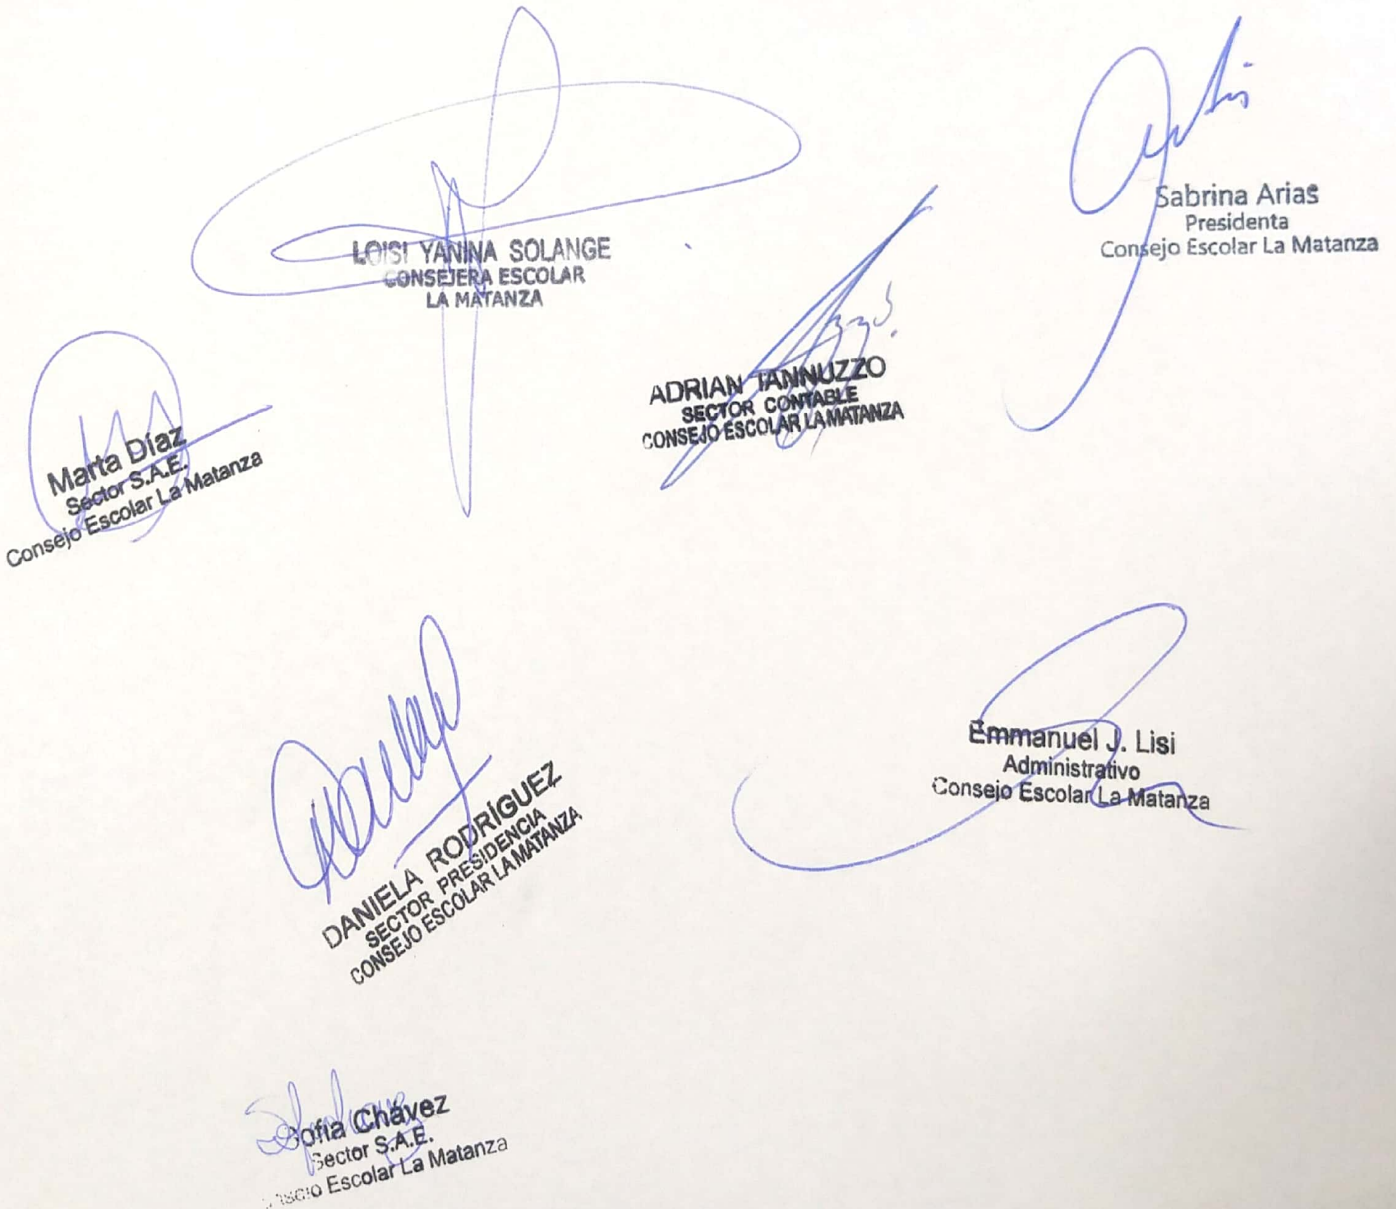 LOISI YANINA SOLANGE
CONSEJERA ESCOLAR
LA MATANZA
Sabrina Arias
Presidenta
Consejo Escolar La Matanza
ADRIAN IANNUZZO
SECTOR CONTABLE
CONSEJO ESCOLAR LA MATANZA
Marta Díaz
Sector S.A.E.
Consejo Escolar La Matanza
DANIELA RODRÍGUEZ
SECTOR PRESIDENCIA
CONSEJO ESCOLAR LA MATANZA
Emmanuel J. Lisi
Administrativo
Consejo Escolar La Matanza
Sofía Chávez
Sector S.A.E.
Consejo Escolar La Matanza